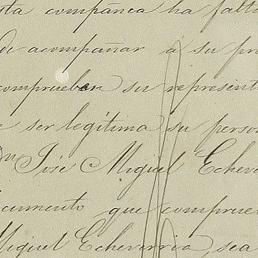 sta compañea ha falt
de acompañar á su pr
comprueban su represent
e ser legítima su person
Dn José Miguel Echever
cumento que comprue
Miguel Echeverria, sea